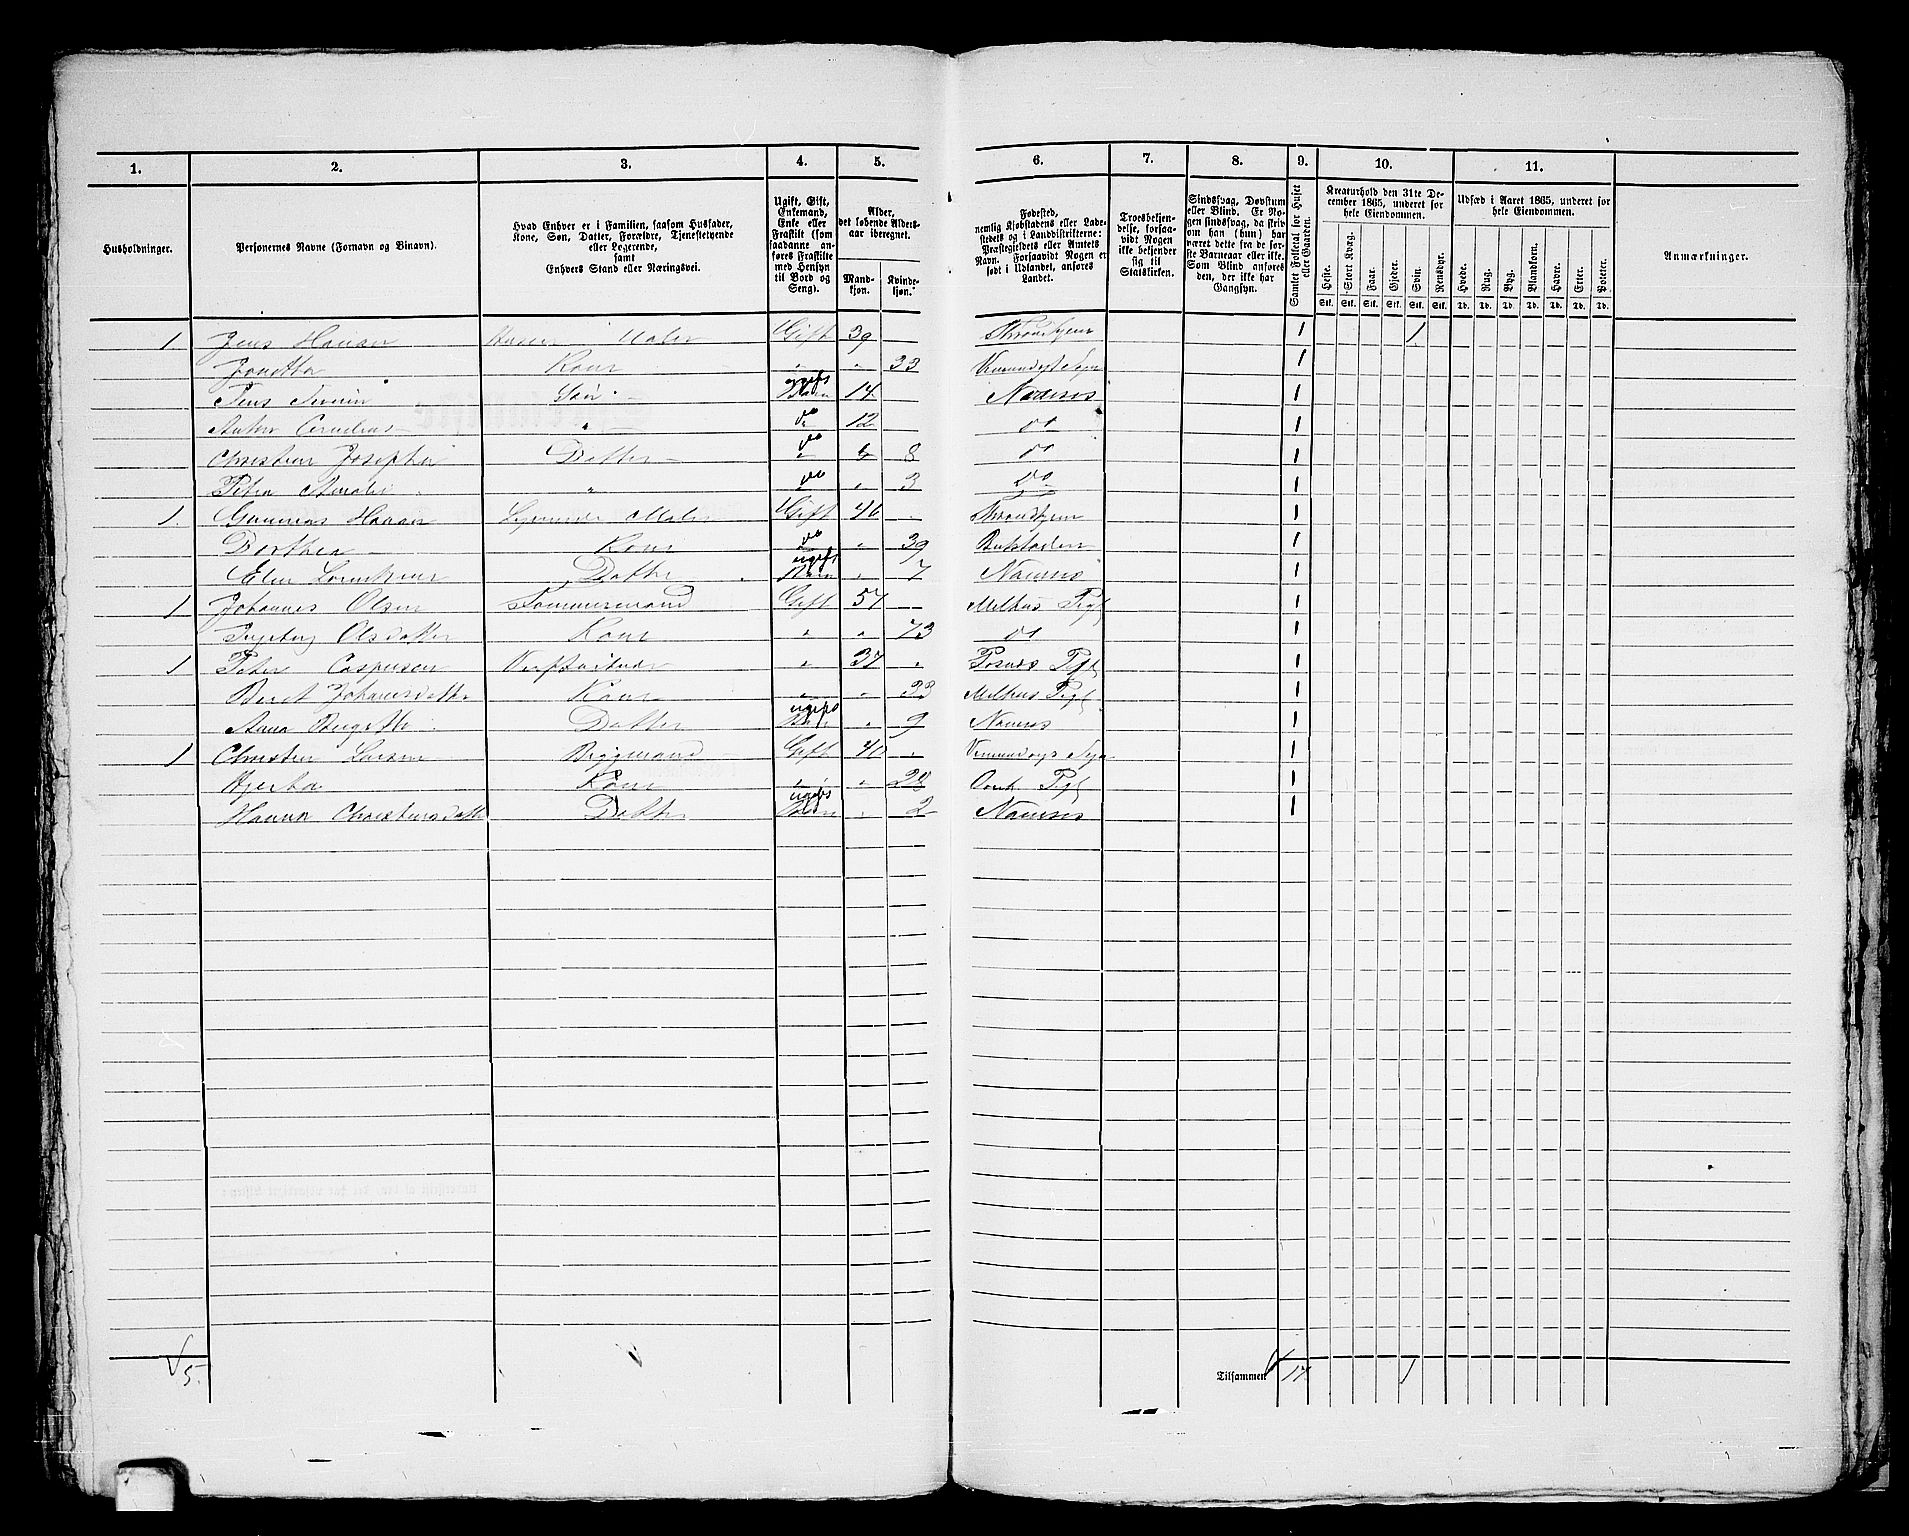 1. 2. 3. 4. 5. 6. 7. 8. 9. 10. 11.
Husholdninger.
Personernes Navne (Fornavn og Binavn).
Hvad Enhver er i Familien, saasom Husfader,
Kone, Søn, Datter, Forældre, Tjenestetyende
eller Logerende,
samt
Enhvers Stand eller Næringsvei.
Ugift, Gift,
Enkemand,
Enke eller
Fraskilt (som
saadanne an-
føres Fraskilte
med Hensyn
til Bord og
Seng).
Alder,
det løbende Alders-
aar iberegnet.
Mand-
kjøn.
Kvinde-
kjøn.
Fødested,
nemlig Kjøbstadens eller Lade-
stedets og i Landdistrikterne:
Præstegjeldets eller Amtets
Navn. Forsaavidt Nogen er
født i Udlandet, anføres
Landet.
Troesbekjen-
delse, forsaa-
vidt Nogen
ikke bekjender
sig til
Statskirken.
Sindssvag, Døvstum
eller Blind. Er No-
gen sindssvag, da skriv
om han (hun) har
været dette fra de før-
ste Barneaar eller ikke.
Som Blind anføres
den, der ikke har
Gangsyn.
Samlet Folketal for Huset
eller Gaarden.
Kreaturhold den 31te De-
cember 1865, underet for
hele Eiendommen.
Heste. Stort Kvæg. Faar. Gjeder. Svin. Rensdyr.
Stk. Stk. Stk. Stk. Stk. Stk.
Udsæd i Aaret 1865, underet for
hele Eiendommen.
Hvede. Rug. Byg. Blandkorn. Havre. Erter. Poteter.
Td. Td. Td. Td. Td. Td. Td.
Anmærkninger.
1. Jens Hansen Maler Gift 39 Throndhjem 1 1
Kone " " 33 1
Jens Søn ugift 14 Namsos 1
" do 12 do 1
Christine Josepha Datter do 8 do 1
Petra " do " 3 do 1
1. Hansen Maler Gift 46 Throndhjem 1
Dorthea Kone do " 39 1
Datter ugift " 7 Namsos 1
1 Johannes Olsen Tømmermand Gift 57 Melhus Pgl 1
Ingeborg Olsdatter Kone " " 73 do 1
1 Peter Caspersen " 37 " Pgl 1
Beret Johansdatter Kone " " 33 Melhus Pgl 1
Anna Datter ugift " 9 Namsos 1
1 Christen Larsen Byggmand Gift 40 " 1
Kone " " Pgl 1
Hanna Datter ugift " 2 Namsos 1
5.
Tilsammen 17 1